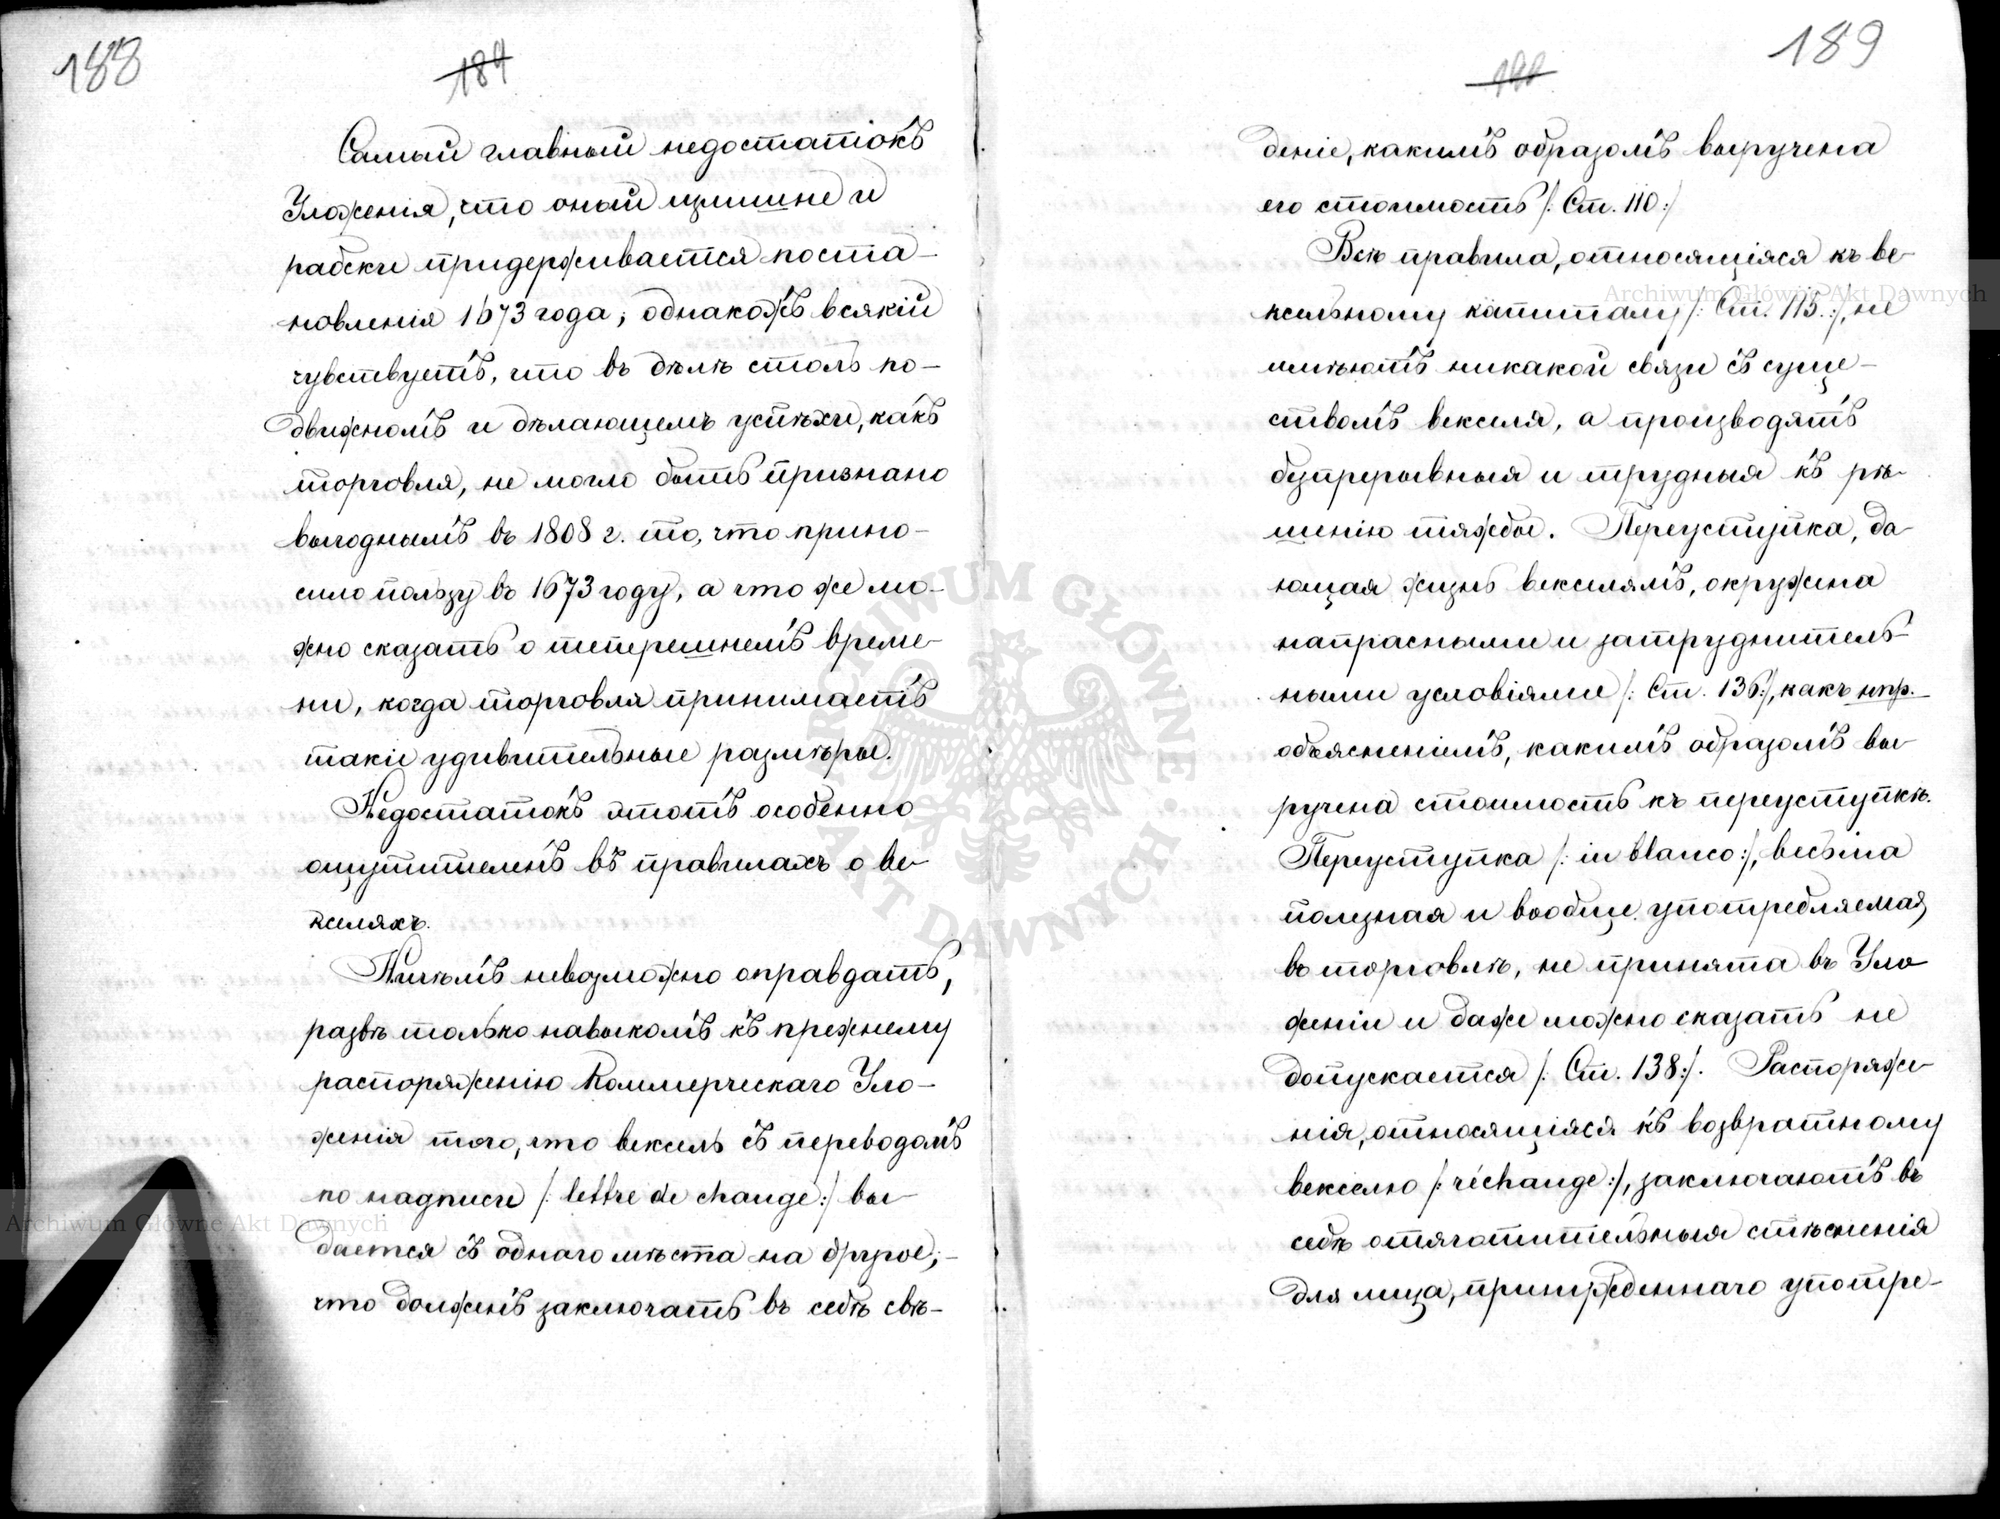 188
184
Самый главный недостатокъ
Уложенія, что оный излишне и
рабски придерживается поста-
новленія 1673 года; однакожъ всякій
чувствуетъ, что въ дѣлѣ столь по-
движномъ и дѣлающемъ успѣхи, какъ
торговля, не могло быть признано
выгоднымъ въ 1808 г. то, что прино-
сило пользу въ 1673 году, а что же мо-
жно сказать о теперешнемъ време-
ни, когда торговля принимаетъ
такіе удивительные размѣры.
Недостатокъ этотъ особенно
ощутителенъ въ правилахъ о ве-
кселяхъ.
Ничѣмъ невозможно оправдать,
развѣ только навыкомъ къ прежнему
распоряженію Коммерческаго Уло-
женія того, что вексель съ переводомъ
по надписи /: lettre de change :/ вы-
дается съ однаго мѣста на другое,-
что долженъ заключать въ себѣ свѣ-
189
деніе, какимъ образомъ выручена
его стоимость /: Ст. 110 :/
Всѣ правила, относящіяся къ ве-
ксельному капиталу /: Ст. 115. :/, не
имѣютъ никакой связи съ суще-
ствомъ векселя, а производятъ
безпрерывныя и трудныя къ рѣ-
шенію тяжбы. Переуступка, да-
ющая жизнь векселямъ, окружена
напрасными и затруднитель-
ными условіями /: Ст. 136 :/, какъ нпр.
объясненіемъ, какимъ образомъ вы-
ручена стоимость къ переуступкѣ.
Переуступка /: in blanco :/, весьма
полезная и вообще употребляемая,
въ торговлѣ, не принята въ Уло-
женіи и даже можно сказать не
допускается /: Ст. 138 :/. Распоряже-
нія, относящіяся къ возвратному
векселю /: réchange :/, заключаютъ въ
себѣ отяготительныя стѣсненія
для лица, принужденнаго употре-
Archiwum Główne Akt Dawnych
Archiwum Główne Akt Dawnych
ARCHIWUM GŁÓWNE AKT DAWNYCH